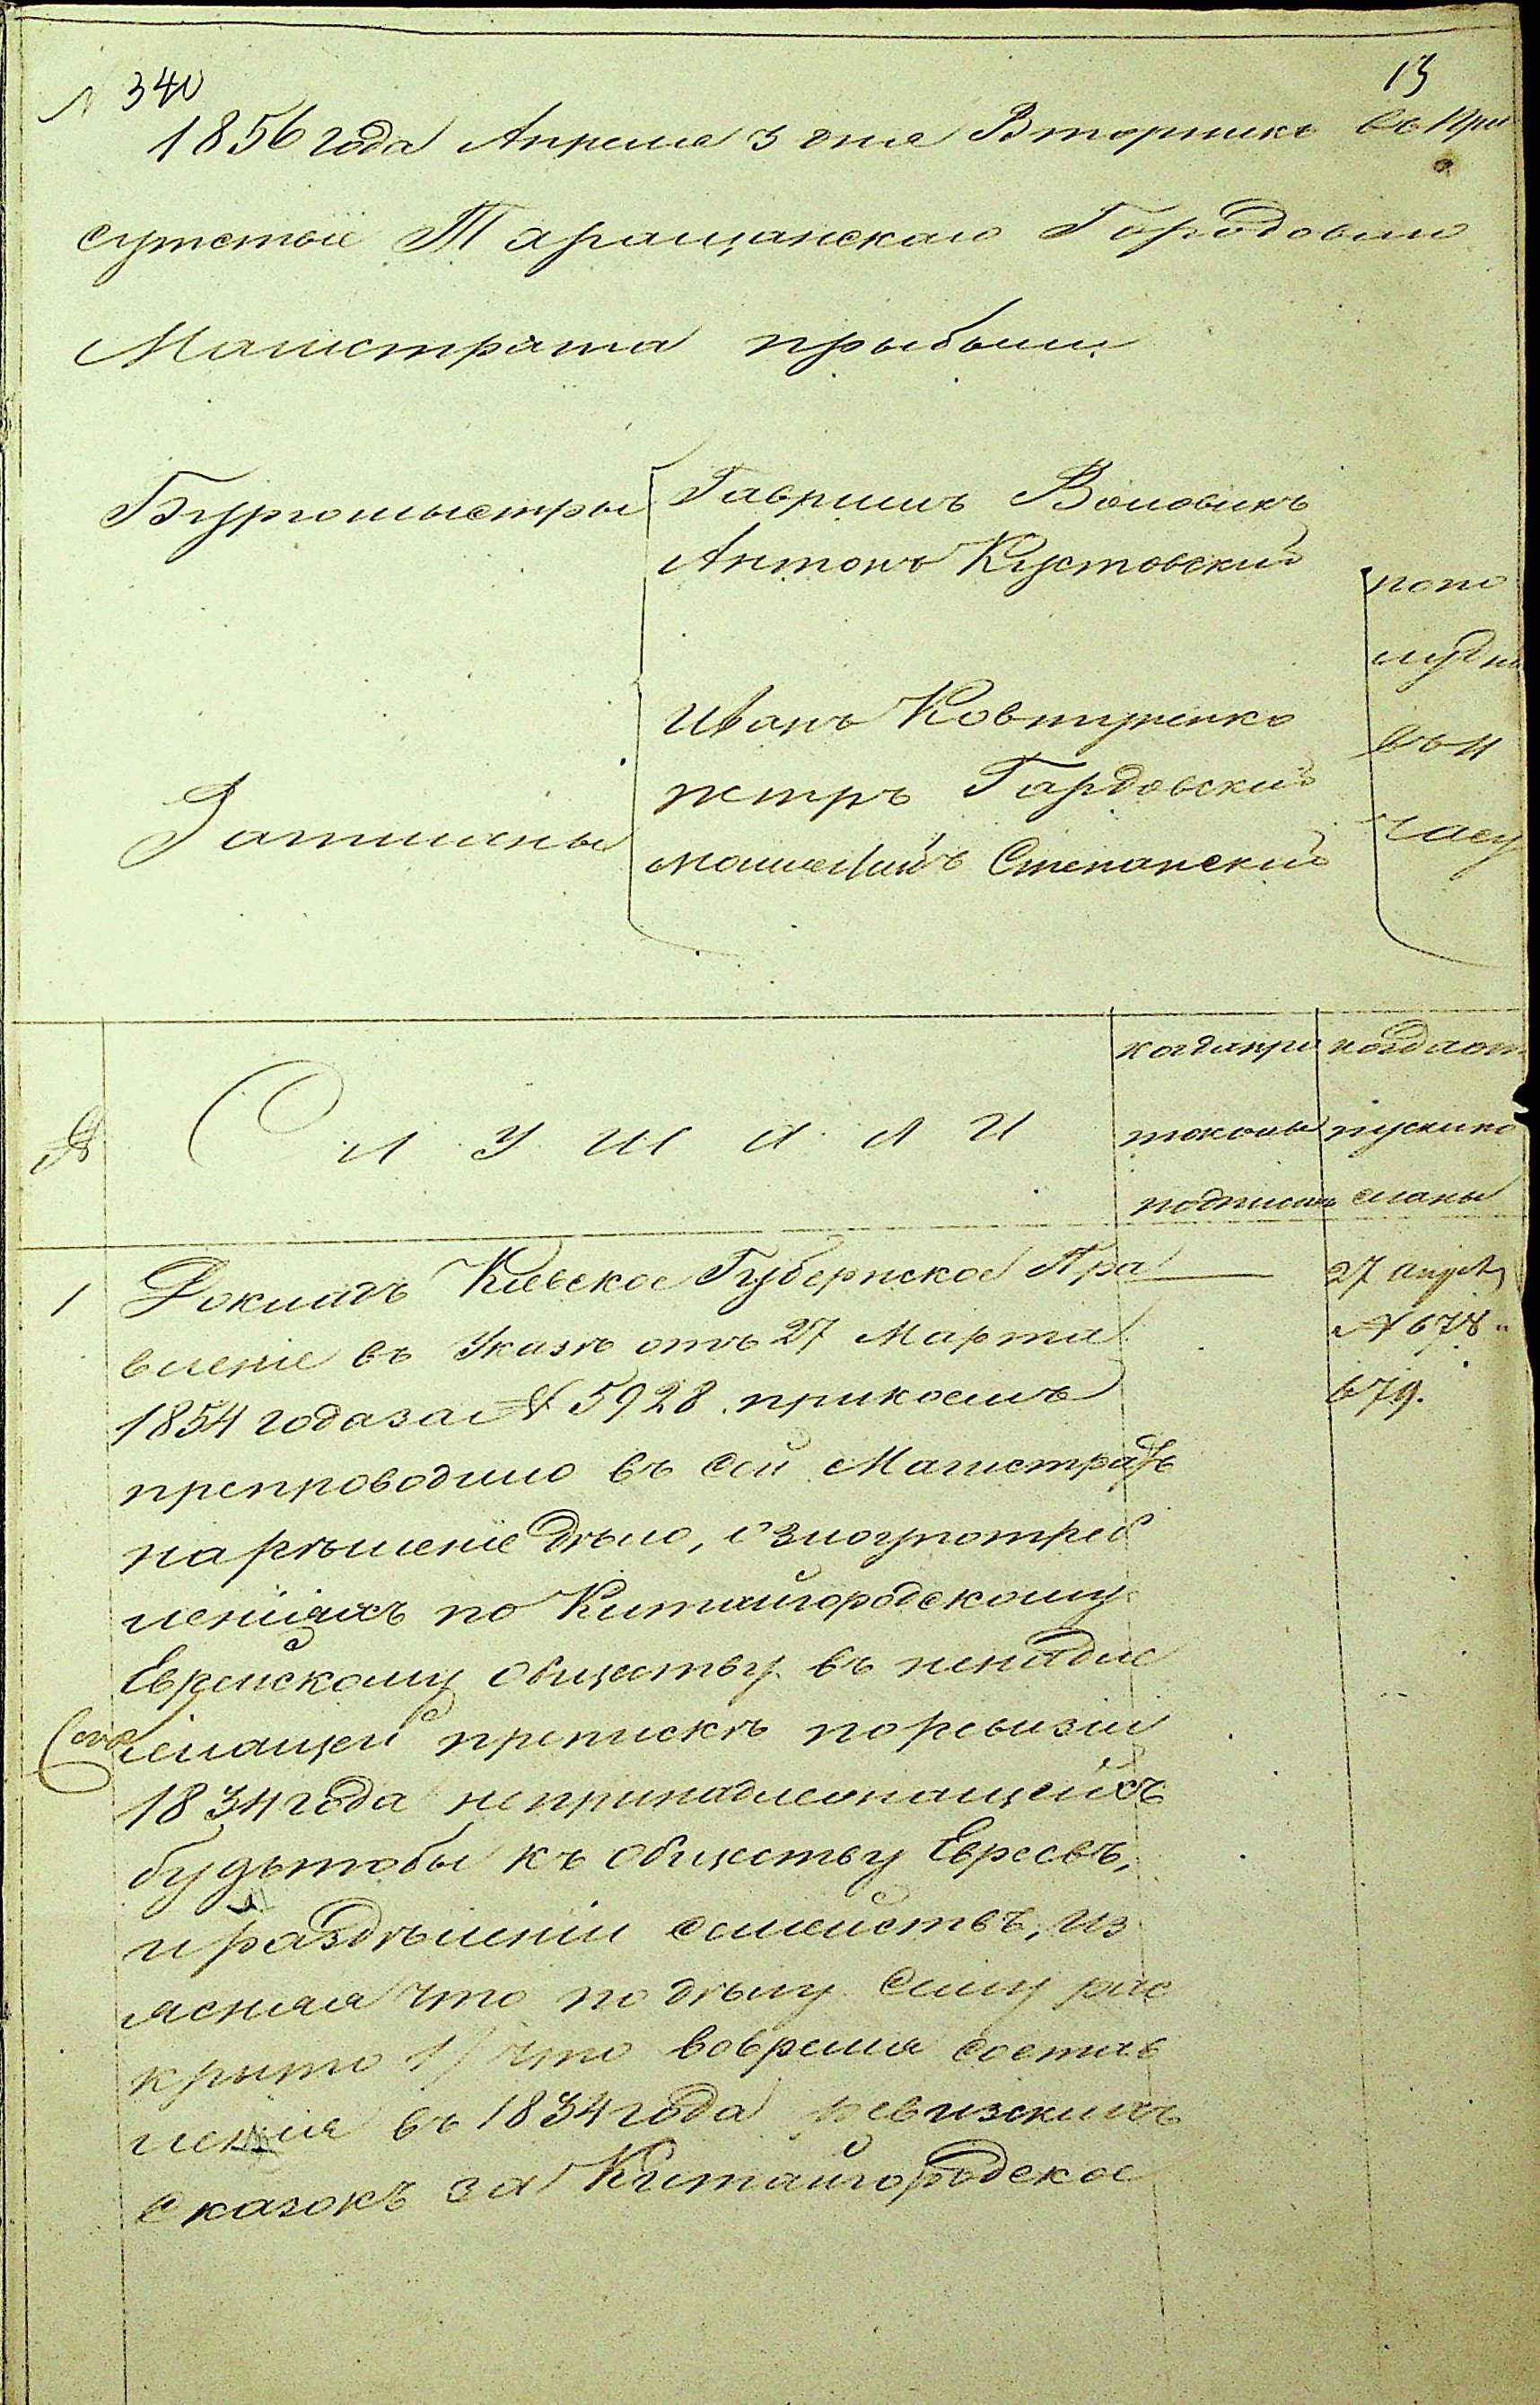 № 340
13
1856 года Апреля 3 дня Вторникъ въ При
сутствіе Таращанскаго Городоваго
Магистрата прыбыли
Бургомыстры
Гаврилъ Воловикъ
Антонъ Кустовский
Ратманы
Иванъ Ковтуненко
петръ Гардовский
Степанский
попо
лудни
въ 11
часу
№
Слушали
когда про
токолы
подписаны
когда от
пуски по
сланы
1 Докладъ Киевское Губернское Пра
вление въ Указѣ отъ 27 Марта
1854 года за № 5928. прикоемъ
препроводило въ сей Магистратъ
на рѣшеніе дѣло, о злоупотреб
леніяхъ по Китайгородскому
Еврейскому обществу въ ненадле
жащей преписке по ревизіи
1834 года непринадлежащихъ
будьтобы къ обществу Евреевъ,
и раздѣленіи семействъ, из
ясняя что по дѣлу сему рас
крыто 1/ что вовремя состав
ления въ 1834 года ревизскихъ
сказокъ за Китайгородское
27 апреля
№ 678
679.